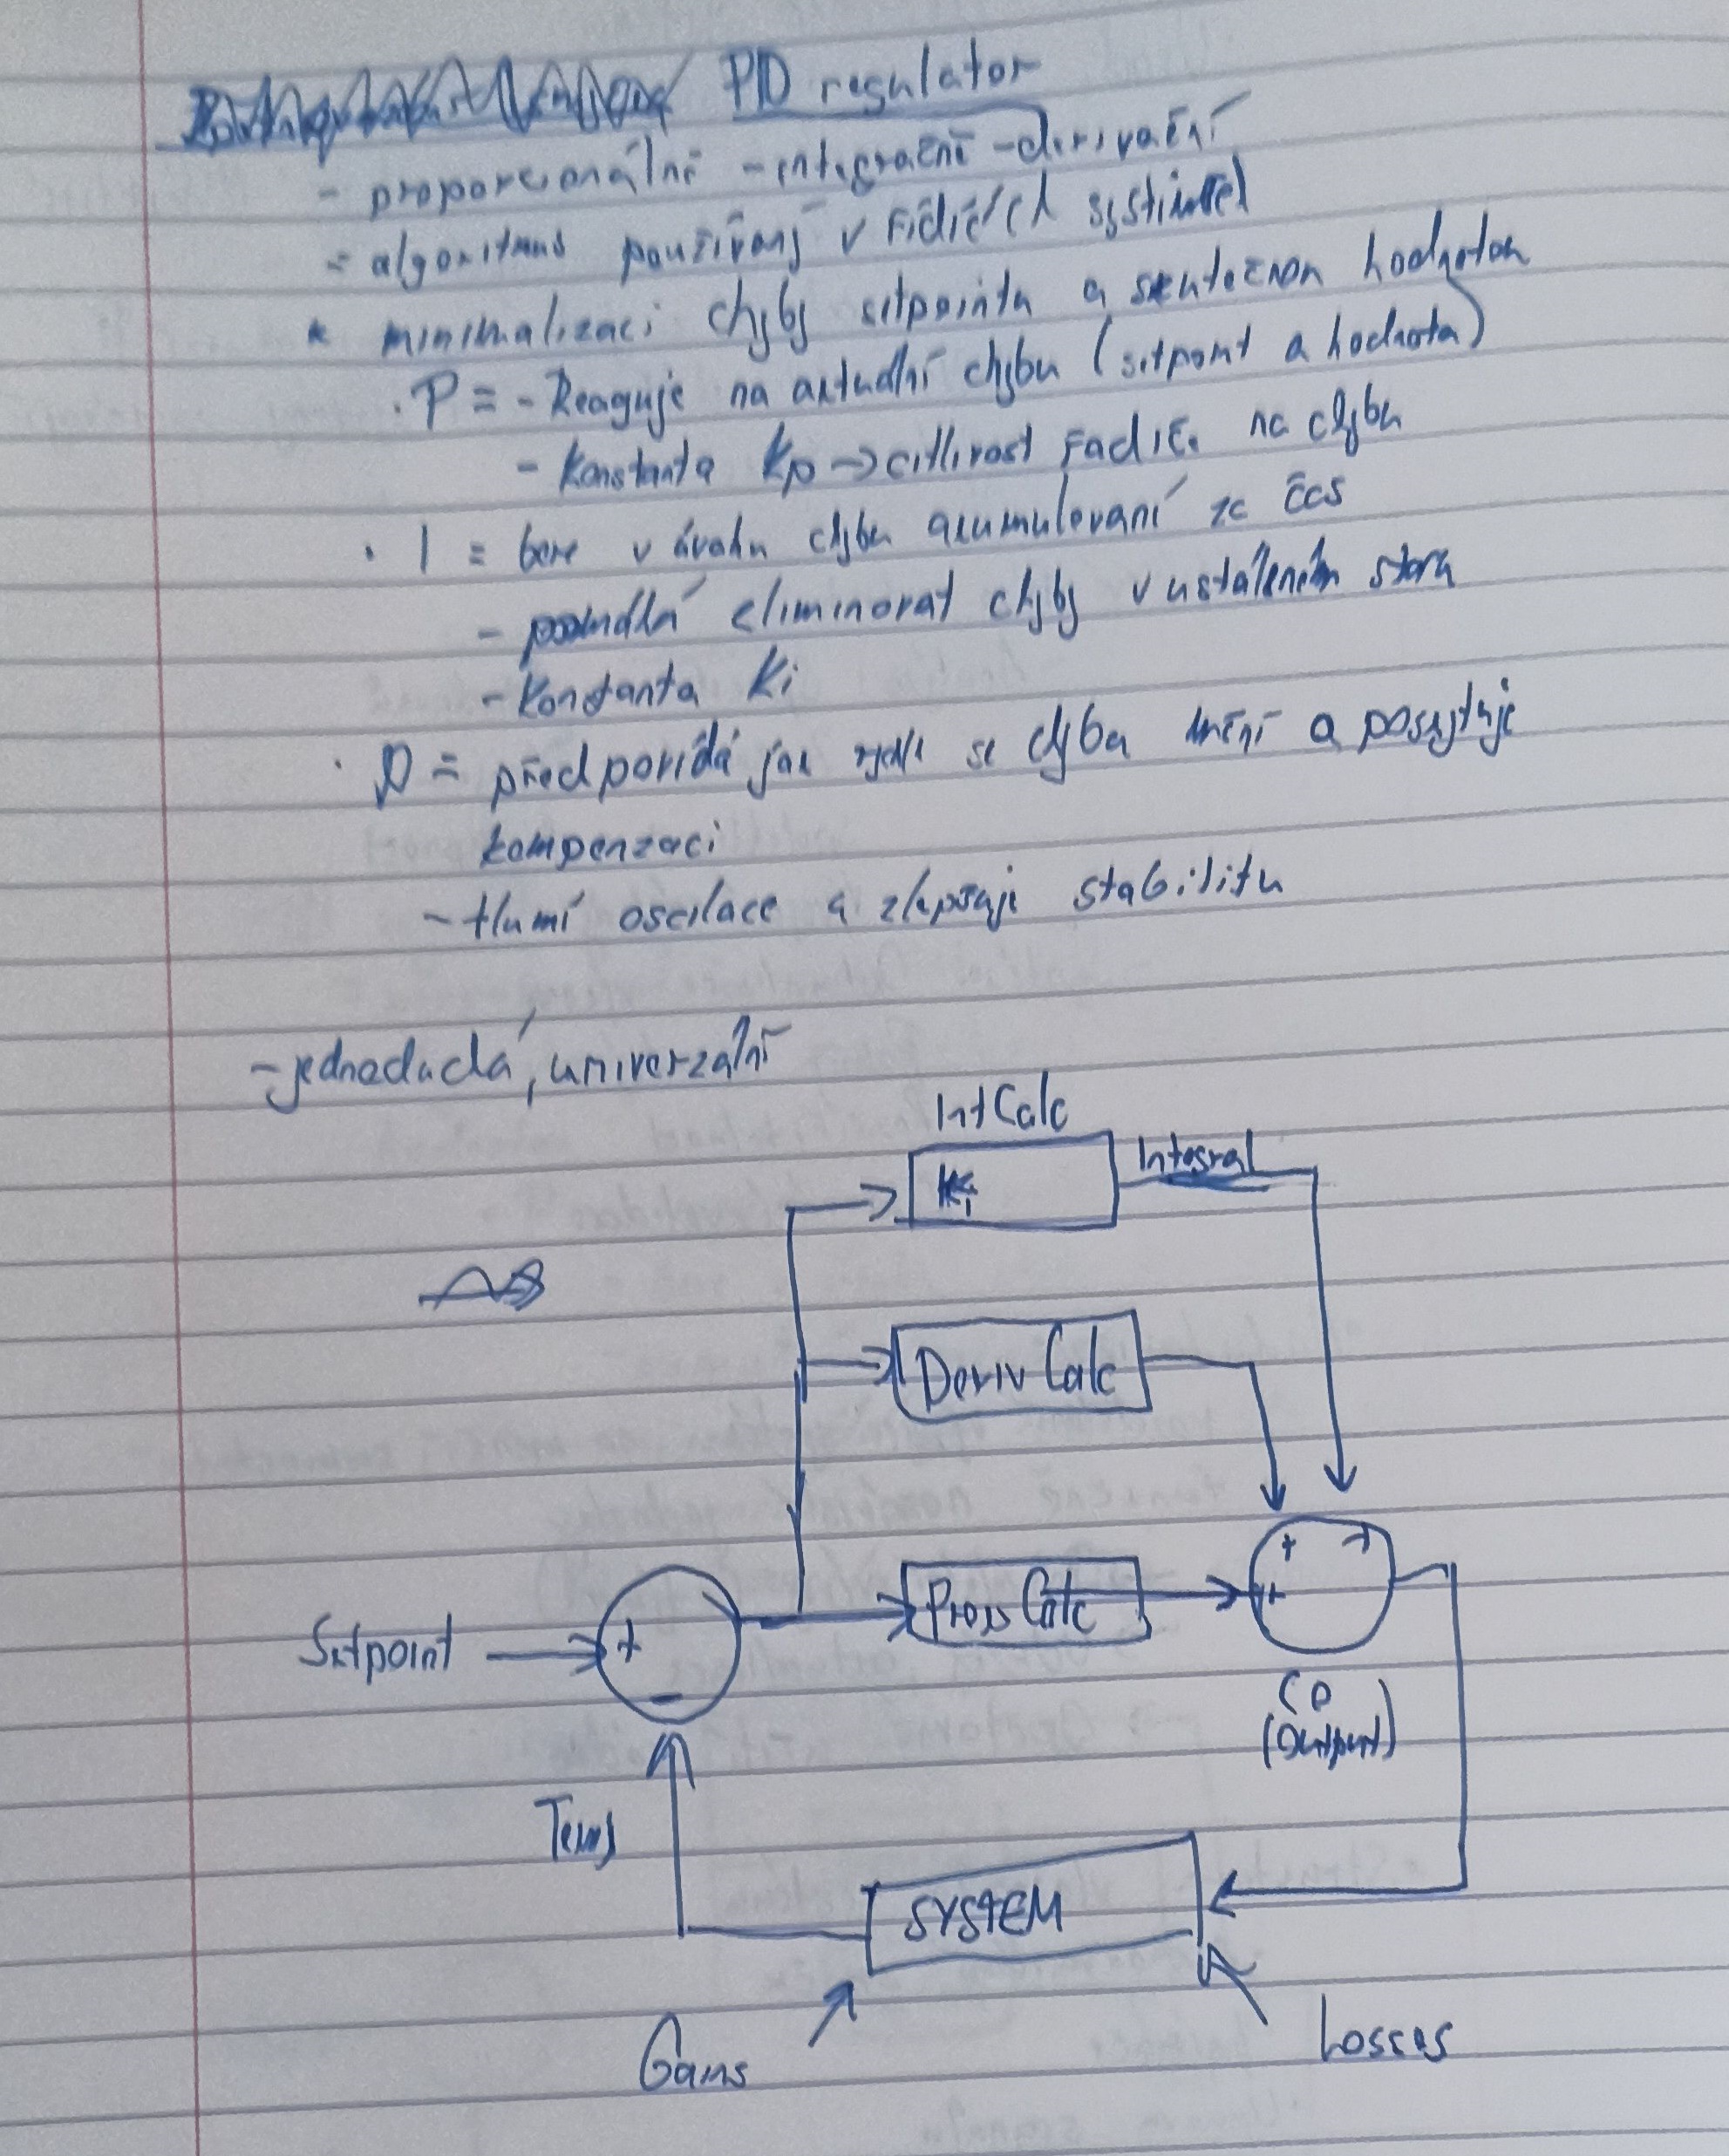 PID regulator
- proporcionálně - integračně - derivační
= algoritmus používaný v řídících systémech
* minimalizaci chyby setpointu a skutečnou hodnotou
· P = - Reaguje na aktuální chybu (setpoint a hodnota)
- Konstanta Kp → citlivost řadiče na chybu
· I = bere v úvahu chybu akumulovaní za čas
- pomáhá eliminovat chyby v ustáleném stavu
- Konstanta Ki
· D = předpovídá jak rychle se chyba mění a poskytuje
kompenzaci
- tlumí oscilace a zlepšuje stabilitu
- jednoduchá, univerzální
Int Calc
Ki
Integral
Deriv Calc
Setpoint
+
-
Prop Calc
+ + +
CO
(Output)
Temp
SYSTEM
Gains
Losses